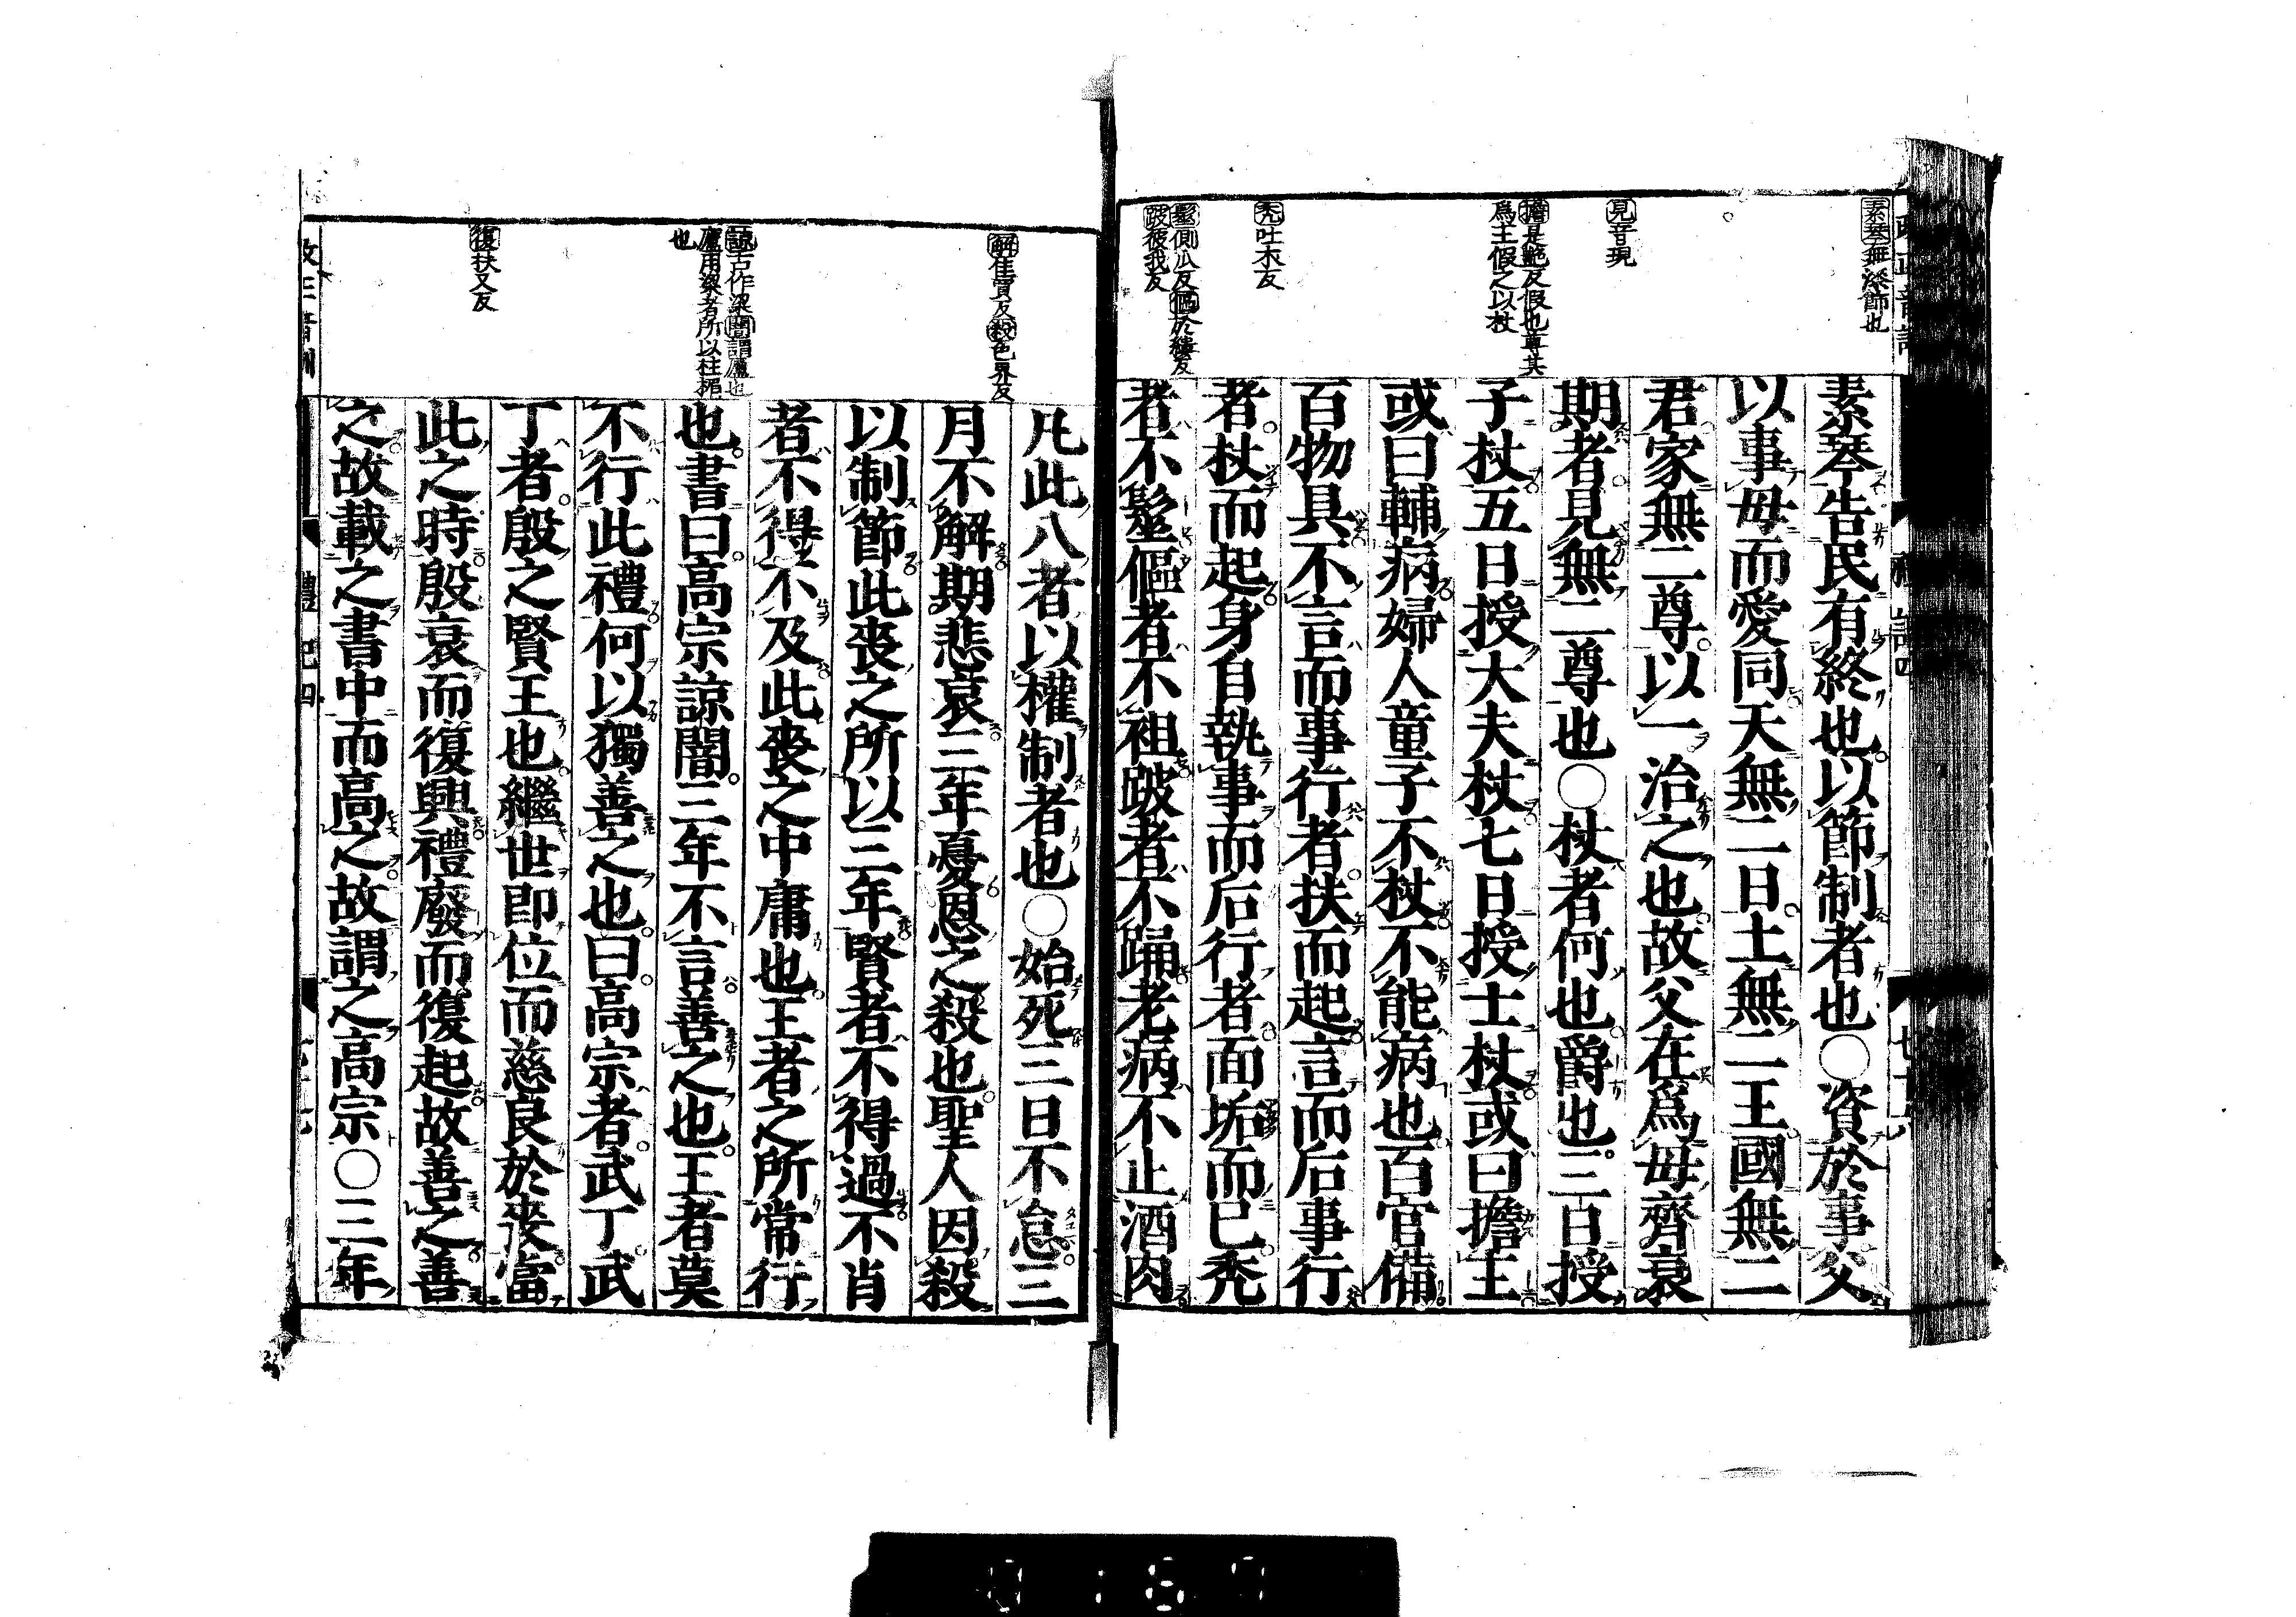 素琴無漆飾也
見音現
擔是豔反假也尊其
爲主假之以杖
禿吐木反
髽側瓜反傴於縷反
跛彼我反
素琴告民有終也。以節制者也○資於事父
以事母而愛同天無二日。土無二王國無二
君家無二尊。以一治之也。故父在爲母齊衰
期者。見無二尊也○杖者何也。爵也。三日授
子杖五日授大夫杖七日授士杖或曰擔主
或曰輔病婦人童子不杖不能病也百官備
百物具不言而事行者。扶而起言而后事行
者。杖而起身自執事而后行者面垢而已禿
者不髽傴者不袒跛者不踊老病不止酒肉
解佳賣反殺色界反
諒古作梁闇謂廬也
廬用梁者所以柱楣
也
復扶又反
凡此八者以權制者也○始死三日不怠三
月不解期悲哀三年憂恩之殺也。聖人因殺
以制節此喪之所以三年賢者不得過不肖
者不得不及此喪之中庸也。王者之所常行
也。書曰。高宗諒闇。三年不言善之也。王者莫
不行此禮何以獨善之也。曰。高宗者。武丁武
丁者。殷之賢王也。繼世即位而慈良於喪當
此之時殷衰而復興禮廢而復起故善之善
之故載之書中而高之。故謂之高宗○三年
禮記四